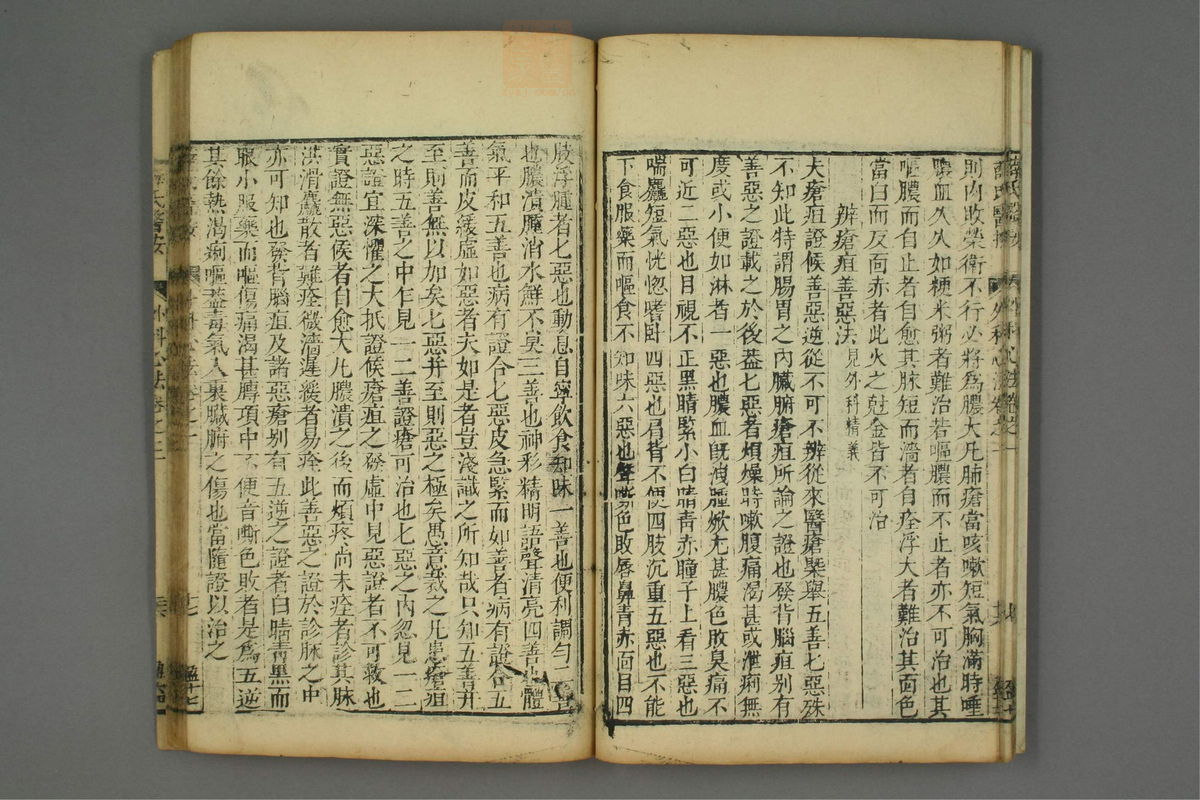 則肉敗榮衛不行必將爲膿大凡肺瘡當咳嗽短氣胸滿時唾
膿血久久如粳米粥者難治若嘔膿而不止者亦不可治也其
嘔膿而自止者自愈其脉短而濇者自痊浮大者難治其面色
當白而反面赤者此火之尅金皆不可治
辨瘡疽善惡法見外科精義
夫瘡疽證候善惡逆從不可不辨從來醫瘡槩舉五善七惡殊
不知此特謂腸胃之內臟腑瘡疽所論之證也發背腦疽別有
善惡之證載之於後葢七惡者煩燥時嗽腹痛渴甚或泄痢無
度或小便如淋者一惡也膿血旣洩腫焮尤甚膿色敗臭痛不
可近二惡也目視不正黑睛緊小白睛靑赤瞳子上看三惡也
喘麤短氣恍惚嗜卧四惡也肩背不便四肢沉重五惡也不能
下食服藥而嘔食不知味六惡也聲嘶色敗唇鼻青赤面目四
肢浮腫者七惡也動息自寧飮食知味一善也便利調勻二善
也膿潰腫消水鮮不臭三善也神彩精明語聲清亮四善也體
氣平和五善也病有證合七惡皮急緊而如善者病有證合五
善而皮緩虛如惡者夫如是者豈淺識之所知哉只知五善幷
至則善無以加矣七惡幷至則惡之極矣愚意裁之凡患瘡疽
之時五善之中乍見一二善證瘡可治也七惡之內忽見一二
惡證宜深懼之大抵證候瘡疽之發虛中見惡證者不可救也
實證無惡候者自愈大凡膿潰之後而煩疼尚未痊者診其脉
洪滑麤散者難痊微濇遲緩者易痊此善惡之證於診脉之中
亦可知也發背腦疽及諸惡瘡別有五逆之證者白睛青黑而
眼小服藥而嘔傷痛渴甚膊項中不便音嘶色敗者是爲五逆
其餘熱渴痢嘔葢毒氣入裏臟腑之傷也當隨證以治之